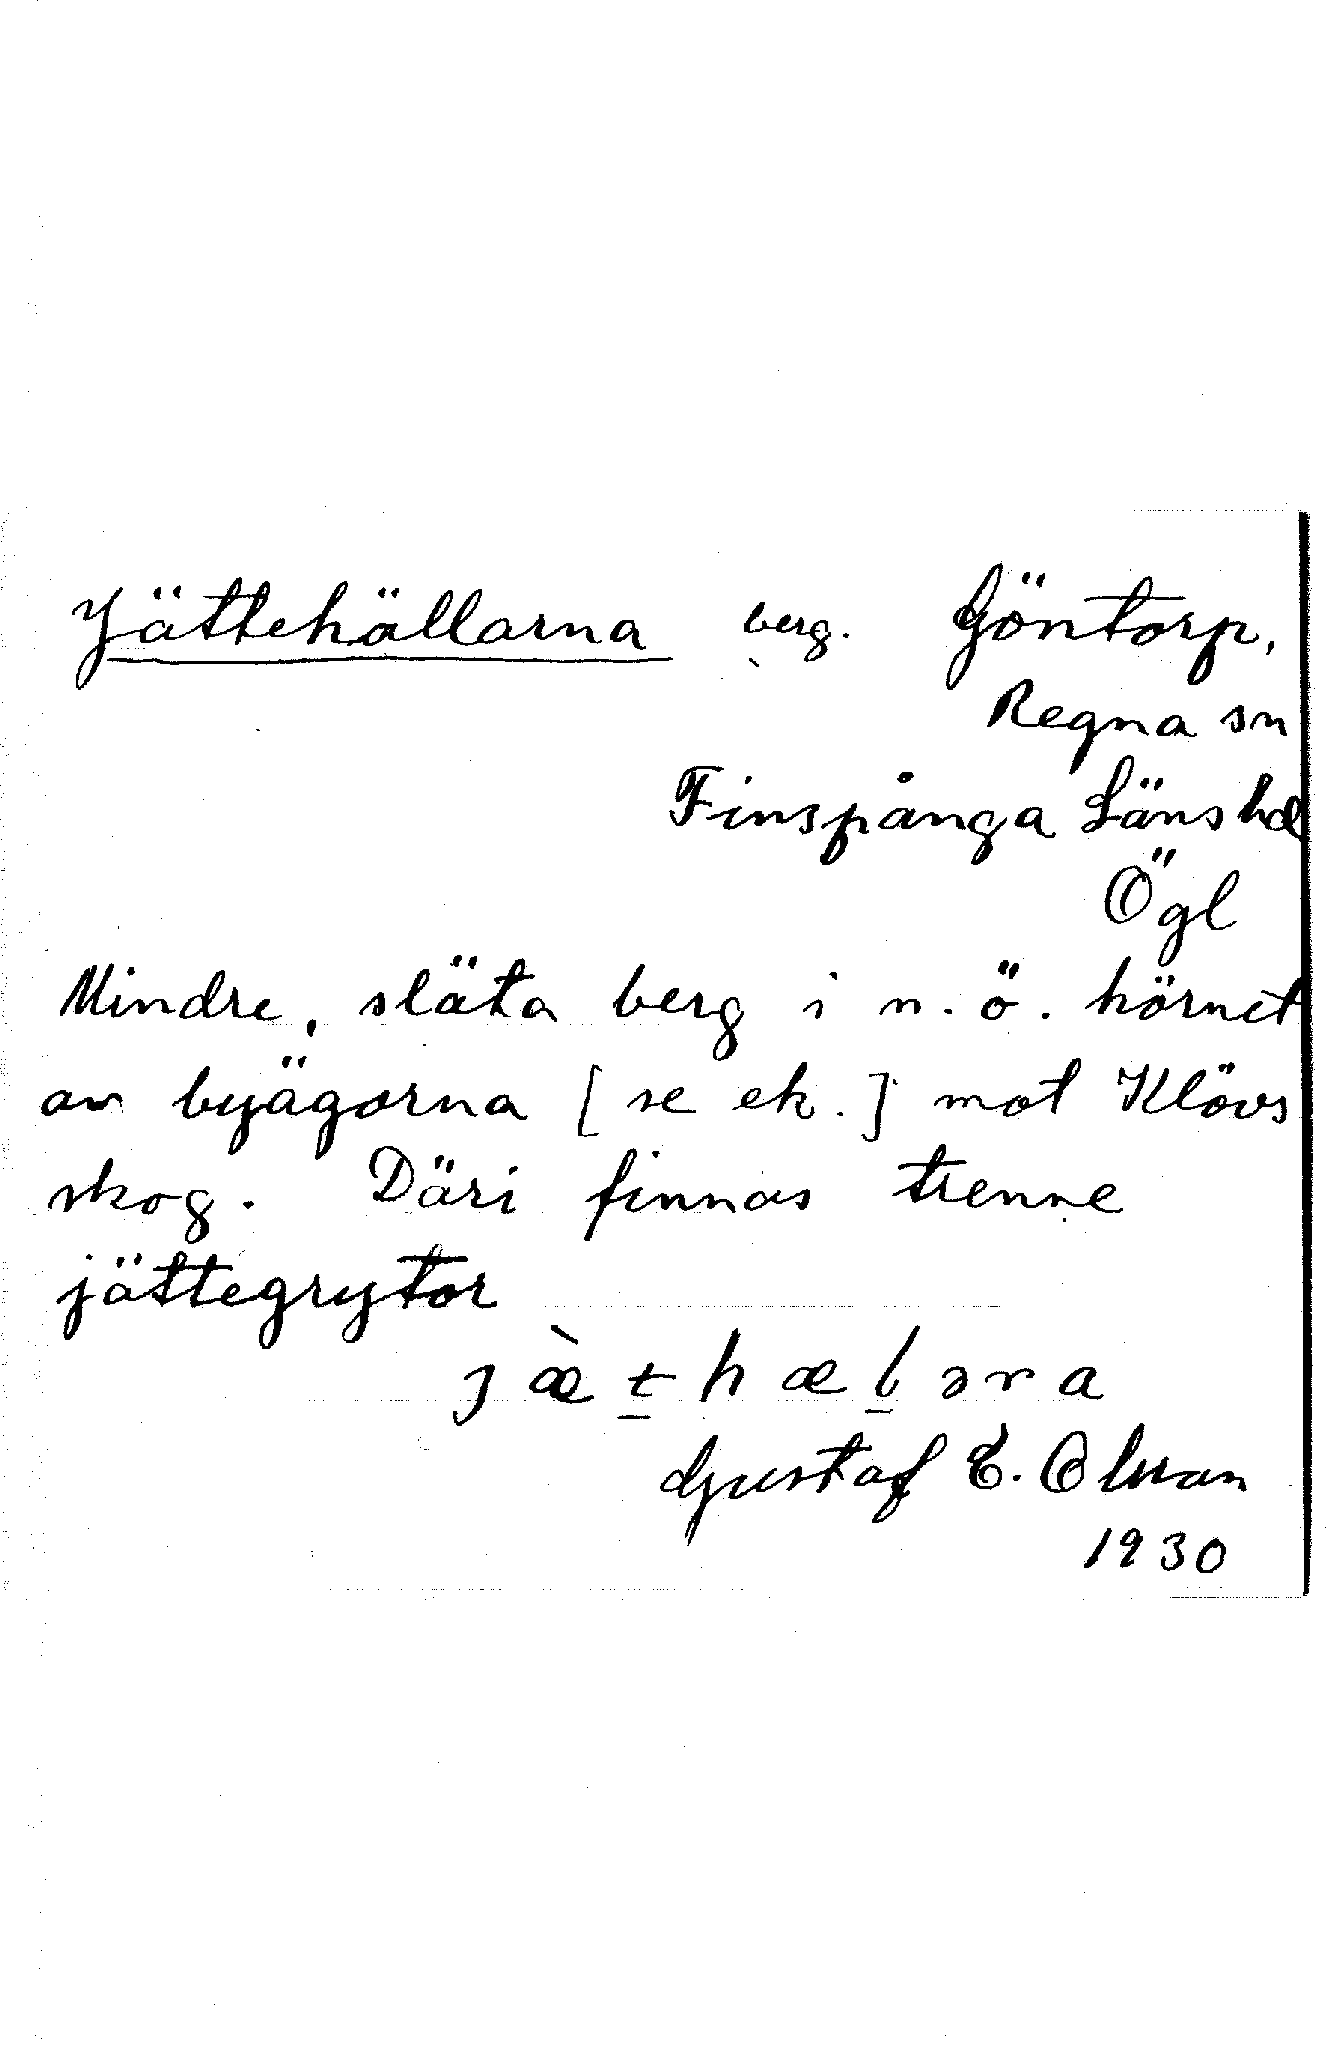 Jättehällarna berg. Göntorp,
Regna sn
Finspånga Läns hd
Ögl
Mindre, släta berg i n.ö. hörnet
av byägorna [se ek.] mot Klövs
skog. Däri finnas trenne
jättegrytor
jæ̀t̲hæl̲əra
Gustaf E. Olsson
1930